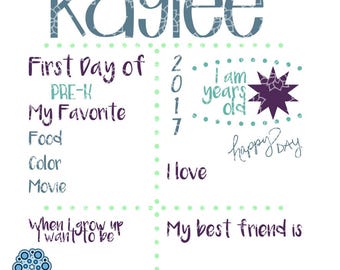 Kaylee
First Day of
PRE-K
My Favorite
Food
Color
Movie
2017
I am
years
old
happy DAY
I love
When I grow up
I want to be
My best friend is